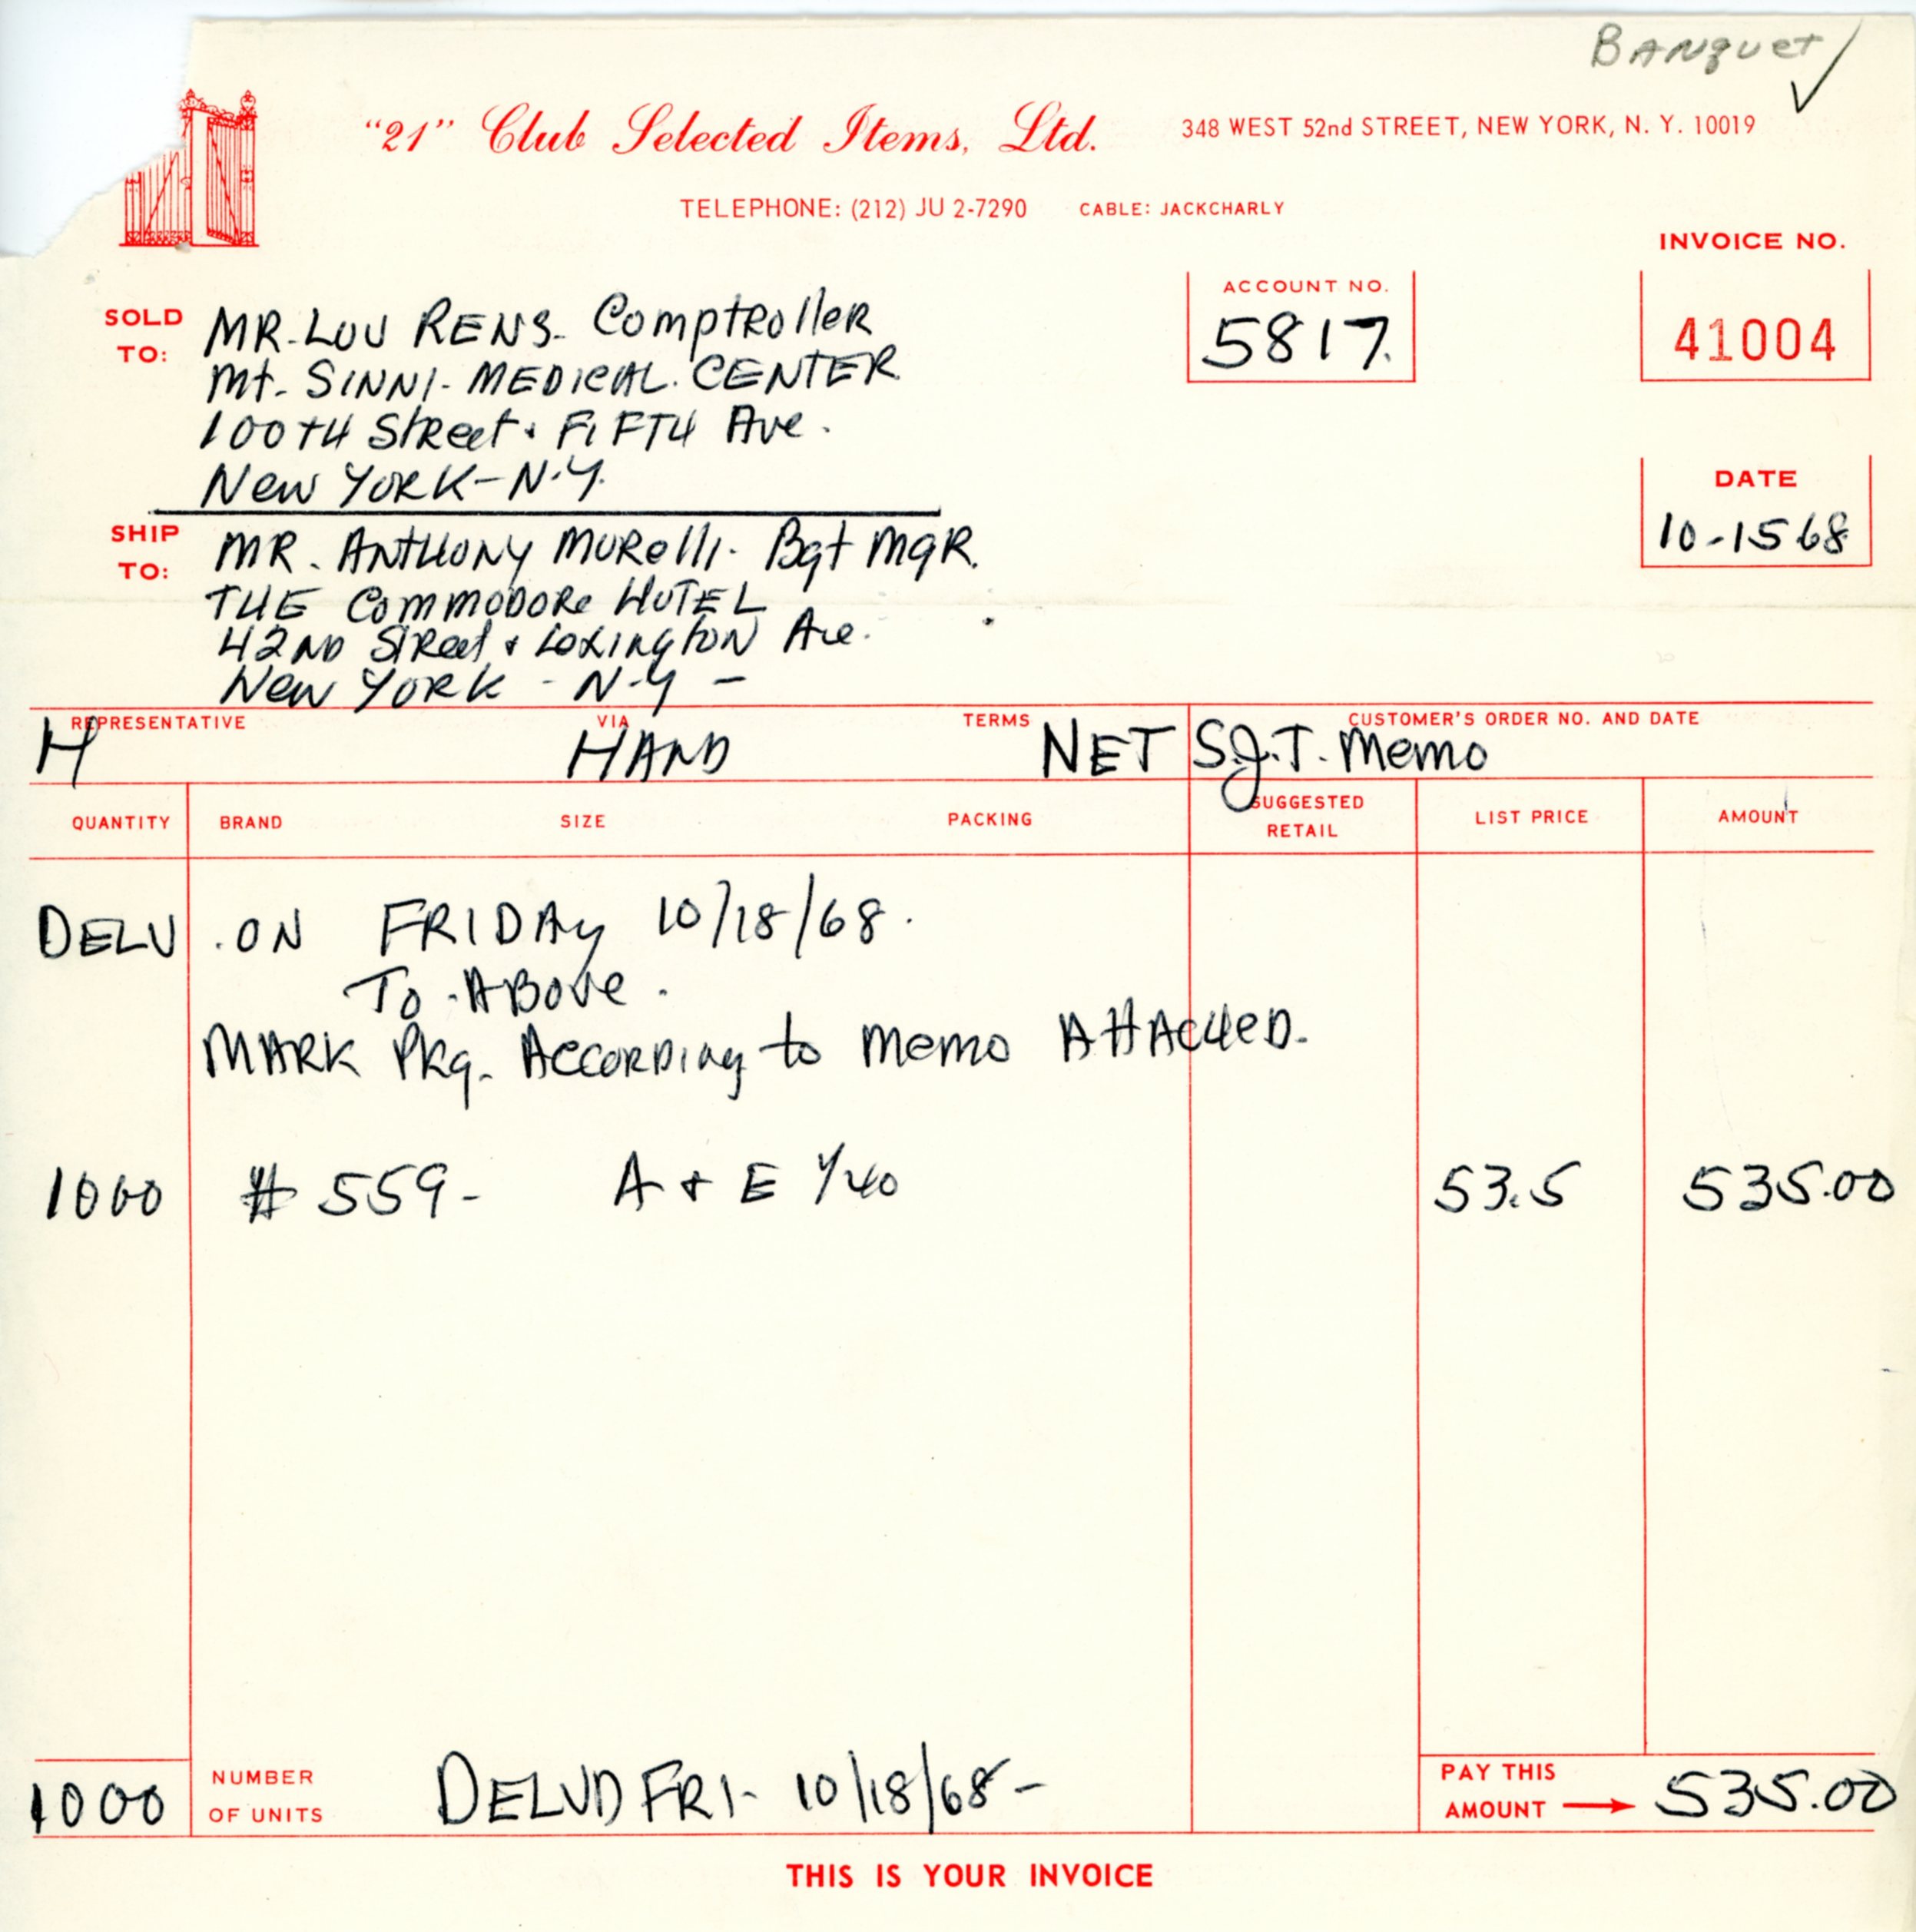 BANquet
"21" Club Selected Items, Ltd. 348 WEST 52nd STREET, NEW YORK, N. Y. 10019
TELEPHONE: (212) JU 2-7290 CABLE: JACKCHARLY
INVOICE NO.
41004
ACCOUNT NO.
5817.
SOLD TO:
MR. LOU RENS- Comptroller
Mt- SINNI- MEDICAL. CENTER
100TH Street & FIFTH Ave.
New YORK-N.Y.
DATE
10-1568
SHIP TO:
MR. ANTHONY MORelli- Bqt MgR.
THE COMMODORe HOTEL
42ND Street & LexINgtoN Ave.
New YORK - N-Y -
REPRESENTATIVE VIA TERMS CUSTOMER'S ORDER NO. AND DATE
H HAND NET S.J.T. Memo
QUANTITY BRAND SIZE PACKING SUGGESTED RETAIL LIST PRICE AMOUNT
DELV. ON FRIDAy 10/18/68.
To ABOVe.
MARK Pkg. AccORDINg to Memo AttAcHeD.
1000 # 559- A & E 1/40 53.5 535.00
1000 NUMBER OF UNITS DELVD FRI- 10/18/68- PAY THIS AMOUNT → 535.00
THIS IS YOUR INVOICE